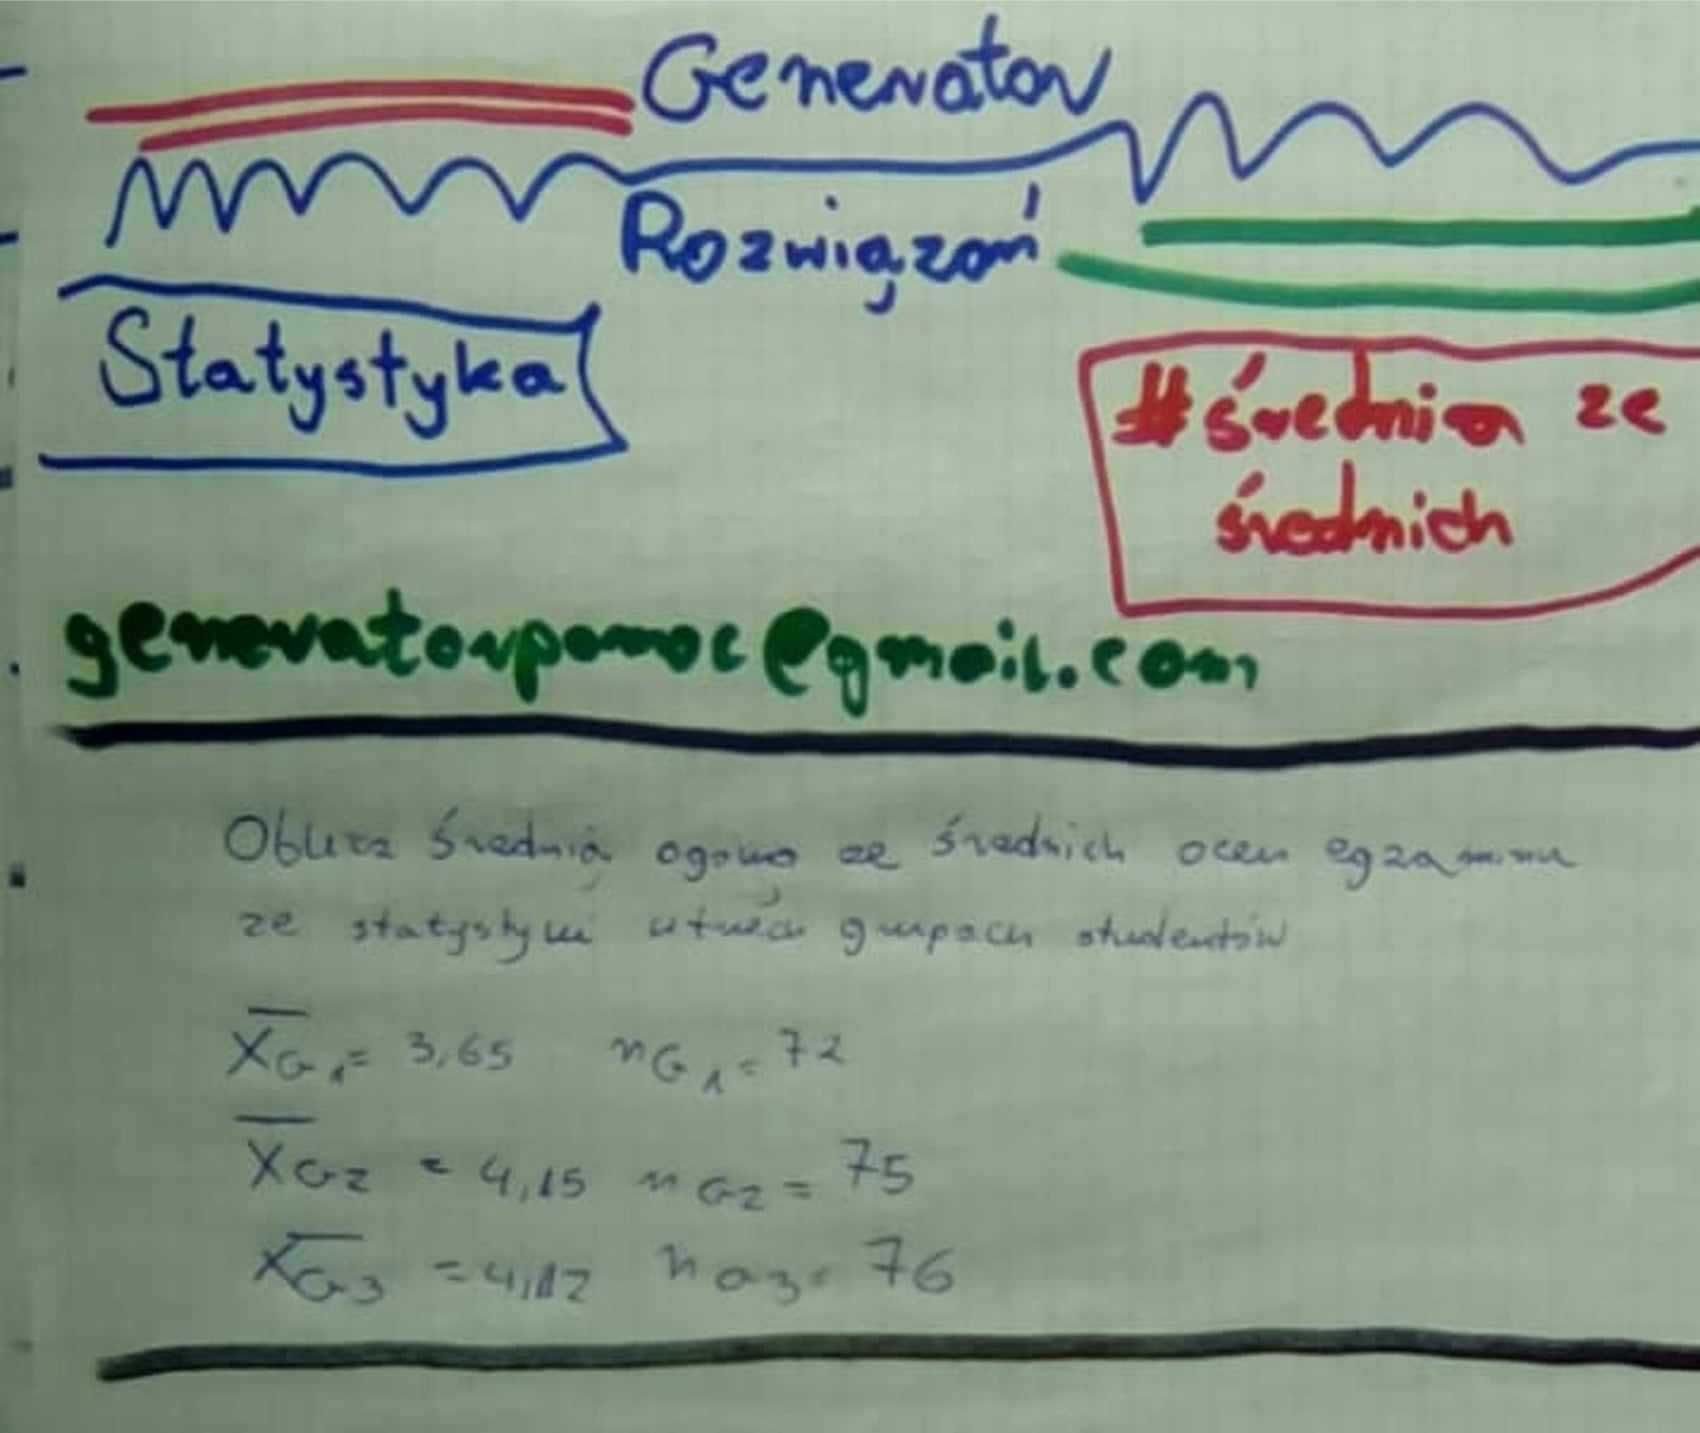 Generator
Rozwiązań
Statystyka
#średnia ze
średnich
generatorpomoc@gmail.com
Oblicz średnią ogólną ze średnich ocen egzaminu
ze statystyki w trzech grupach studentów
X̅G1 = 3,65 nG1 = 72
X̅G2 = 4,15 nG2 = 75
X̅G3 = 4,12 nG3 = 76